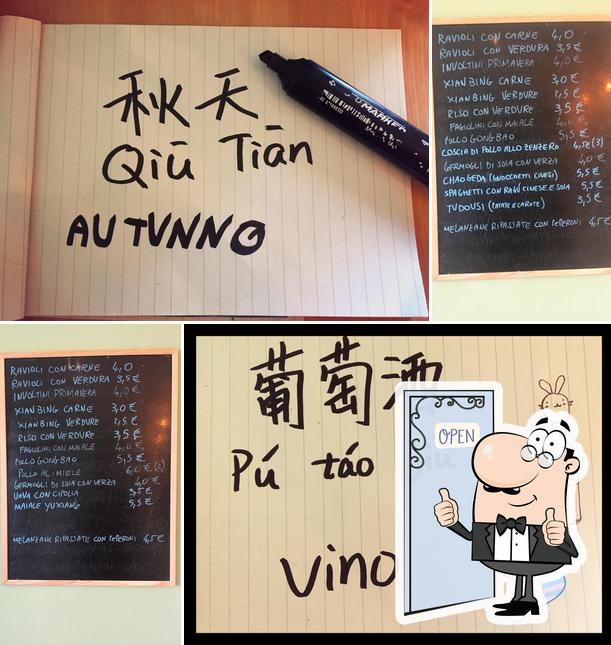 秋天
Qiū Tiān
AUTUNNO
MARKER
RAVIOLI CON CARNE 4,0
RAVIOLI CON VERDURA 3,5€
INVOLTINI PRIMAVERA 4,0€
XIANBING CARNE 3,0€
XIANBING VERDURE 2,5€
RISO CON VERDURE 3,5€
FAGIOLINI CON MAIALE 4,0€
POLLO GONGBAO 5,5€
COSCIA DI POLLO ALLO ZENZERO 4,5€(3)
GERMOGLI DI SOIA CON VERZA 4,0€
CHAO GEDA (GNOCCHETTI CINESI) 5,5€
SPAGHETTI CON RAGÙ CINESE E SOIA 5,5€
TUDOUSI (PATATE E CAROTE) 3,5€
MELANZANE RIPASSATE CON PEPERONI 4,5€
RAVIOLI CON CARNE 4,0
RAVIOLI CON VERDURA 3,5€
INVOLTINI PRIMAVERA 4,0€
XIANBING CARNE 3,0€
XIANBING VERDURE 2,5€
RISO CON VERDURE 3,5€
FAGIOLINI CON MAIALE 4,0€
POLLO GONGBAO 5,5€
POLLO AL MIELE 6,0€(2)
GERMOGLI DI SOIA CON VERZA 4,0€
UOVA CON CIPOLLA 3,5€
MAIALE YUXIANG 5,5€
MELANZANE RIPASSATE CON PEPERONI 4,5€
葡萄酒
Pú táo
Vino
OPEN